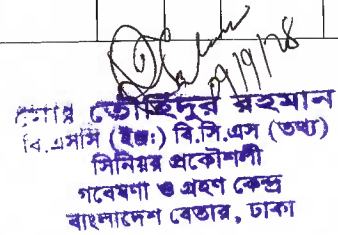 ০৭/৭/২৪
মোঃ তৌহিদুর রহমান
বি.এসসি (ইঞ্জ:) বি.সি.এস (তথ্য)
সিনিয়র প্রকৌশলী
গবেষণা ও গ্রহণ কেন্দ্র
বাংলাদেশ বেতার, ঢাকা